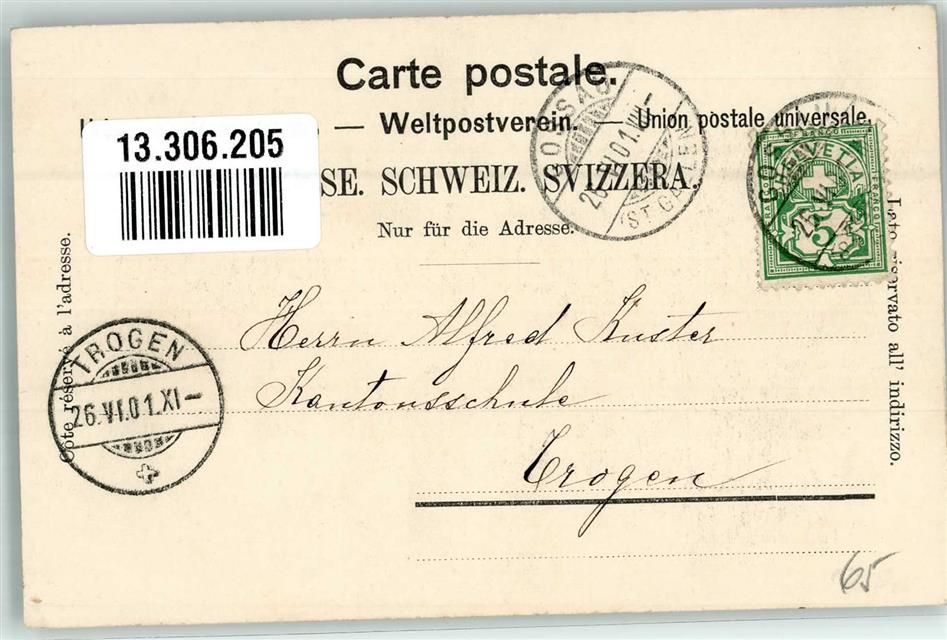 Carte postale.
— Weltpostverein. — Union postale universale.
13.306.205
SE. SCHWEIZ. SVIZZERA.
Nur für die Adresse.
GOSSAU
(ST. GALLEN)
FRANCO
HELVETIA
5
Côté réservé à l'adresse.
Lato riservato all' indirizzo.
TROGEN
26.VI.01.XI—
Herrn Alfred Kuster
Kantonsschule
Trogen
65